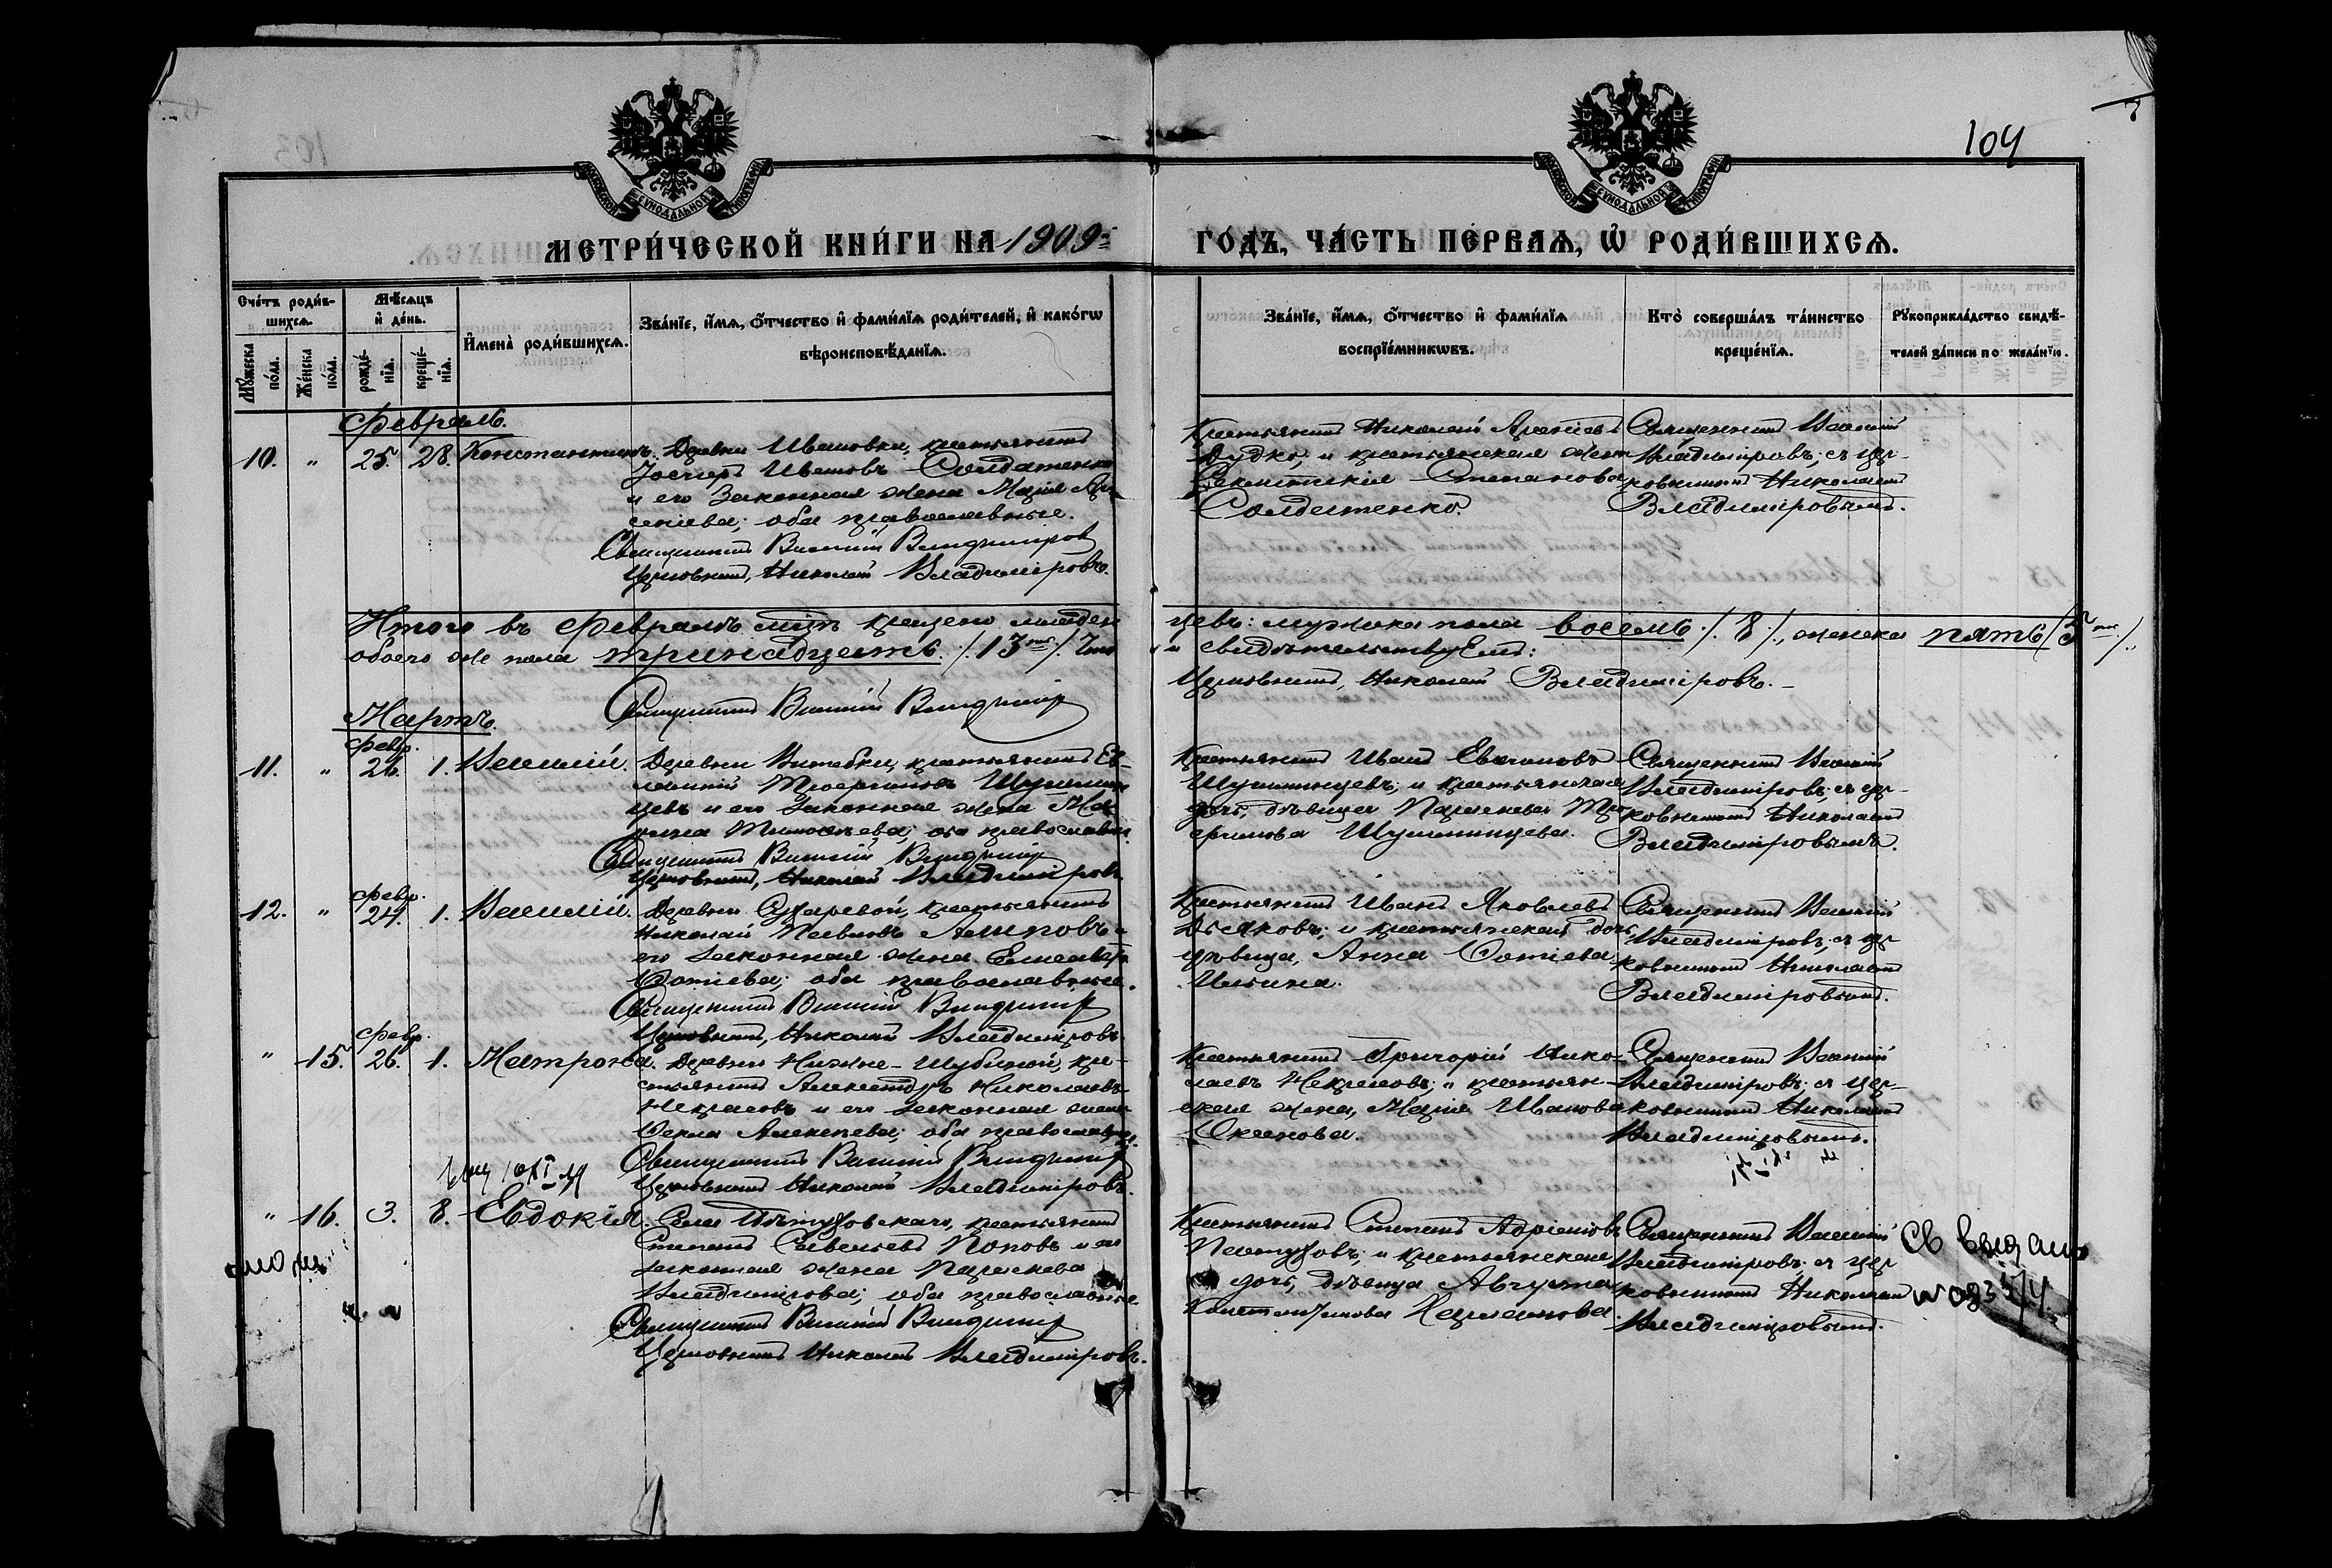 104
МЕТРИ́ЧЕСКОЙ КНИ́ГИ НА 1909й
ГО́ДЪ, ЧА́СТЬ ПЕ́РВАѦ, Ѡ҆ РОДИ́ВШИХСѦ.
Сче́тъ роди́в-
шихсѧ.
Мꙋ́жеска по́ла.
Же́нска по́ла.
Мѣ́сѧцъ
и҆ де́нь.
рожде́-
нїѧ.
креще́-
нїѧ.
И҆мена̀ роди́вшихсѧ.
Зва́нїе, и҆́мѧ, ѻ҆́тчество и҆ фами́лїѧ роди́телей, и҆ како́гѡ
вѣроисповѣ́данїѧ.
Зва́нїе, и҆́мѧ, ѻ҆́тчество и҆ фами́лїѧ
воспрїе́мникѡвъ.
Кто̀ соверша́лъ та́инство
креще́нїѧ.
Рꙋкоприкла́дство свидѣ́-
телей за́писи по жела́нїю.
Февраль.
10. " 25. 28. Константинъ.
Деревни Ивановки, крестьянинъ
Іосифъ Ивановъ Солдатенко
и его законная жена Марія Ар-
сеніева; оба православные.
Священникъ Василій Владиміров
Церковникъ, Николай Владиміровъ.
Крестьянинъ Николай
Дудко, и крестьянская жена
Степанова
Солдатенко.
Священникъ Василій
Владиміровъ; съ цер-
ковникомъ Николаемъ
Владиміровымъ.
Итого въ Февралѣ мцѣ крещено младен
цевъ: мужска пола восемь ./. 8 /., женска пять /5ть/.
обоего же пола тринадцать ./. 13ть /. Что
и свидѣтельствуемъ:
Священникъ Василій Владимір
Церковникъ, Николай Владиміровъ.
Мартъ.
11. " февр. 26. 1. Василій.
Деревни Витебки, крестьянинъ Ев-
Шушинцевъ и его законная жена Ма-
рина Тимофѣева; оба православн.
Священникъ Василій Владимір
Церковникъ, Николай Владиміровъ
Крестьянинъ Иванъ
и крестьянская
дочь, дѣвица Параскева
Священникъ Василій
Владиміровъ; съ цер-
ковникомъ Николаемъ
Владиміровымъ.
12. " февр. 24. 1. Василій.
Деревни Сухаревой, крестьянинъ
Николай Павловъ Ашповъ и
его законная жена Елисавета
Фотіева; оба православные.
Священникъ Василій Владимір
Церковникъ, Николай Владиміровъ.
Крестьянинъ Иванъ Яковлевъ
Дьяковъ; и крестьянская дочь,
дѣвица, Анна Фотіева
Ильина.
Священникъ Василій
Владиміровъ; съ цер
ковникомъ Николаемъ
Владиміровымъ.
" 15. февр. 26. 1. Матрона.
Деревни Нижне-Шубиной, кре-
стьянинъ Александръ Николаевъ
Некрасовъ и его законная жена
Фекла Алексѣева; оба православные.
Священникъ Василій Владимір
Церковникъ Николай Владиміровъ.
Крестьянинъ Григорій Нико-
лаевъ Некрасовъ; и крестьян-
ская жена, Марія Иванова
Священникъ Василій
Владиміровъ; съ цер-
ковникомъ Николаемъ
Владиміровымъ.
" 16. 3. 8. Евдокія.
Села Пѣтуховскаго, крестьянинъ
Степанъ Савельевъ Поповъ и его
законная жена Параскева
Владимірова; оба православные.
Священникъ Василій Владимір
Церковникъ Николай Владиміровъ.
Крестьянинъ Степанъ Адріановъ
Пастуховъ; и крестьянская
дочь, дѣвица Августа
Константинова
Священникъ Василій
Владиміровъ; съ цер
ковникомъ Николаемъ
Владиміровымъ.
Св выдано